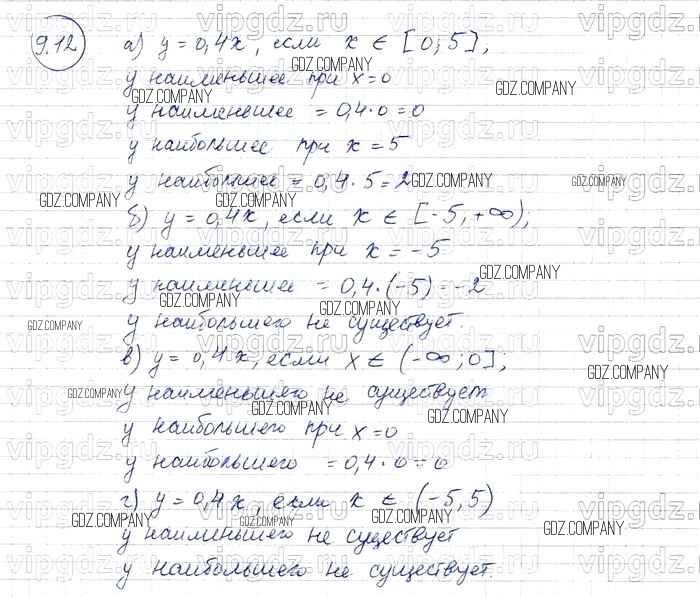 9.12 а) y = 0,4x, если x ∈ [0; 5],
y наименьшее при x = 0
y наименьшее = 0,4·0 = 0
y наибольшее при x = 5
y наибольшее = 0,4·5 = 2
б) y = 0,4x, если x ∈ [-5, +∞);
y наименьшее при x = -5
y наименьшее = 0,4·(-5) = -2
y наибольшего не существует.
в) y = 0,4x, если x ∈ (-∞; 0];
y наименьшего не существует
y наибольшего при x = 0
y наибольшего = 0,4·0 = 0
г) y = 0,4x, если x ∈ (-5, 5)
y наименьшего не существует
y наибольшего не существует.
GDZ.COMPANY
vipgdz.ru